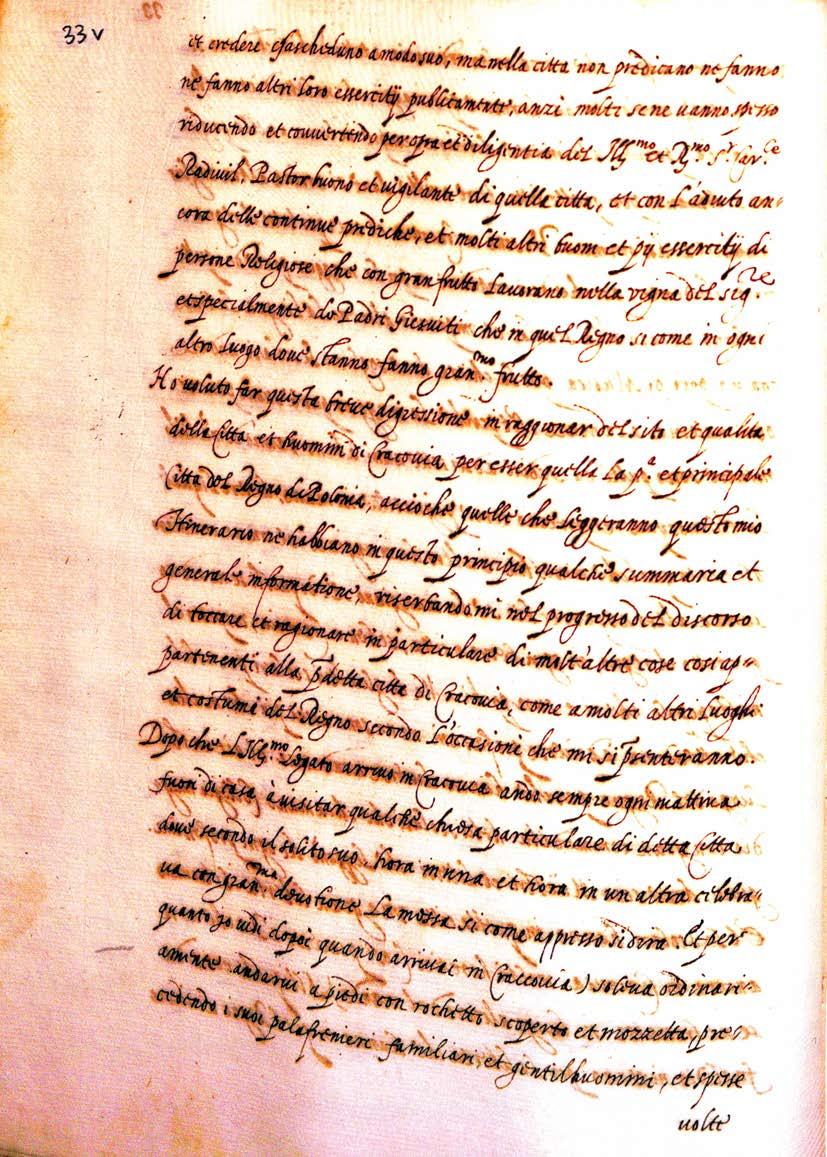 33 v
et credere ciascheduno a modo suo, ma nella citta non predicano ne fanno
ne fanno altri loro essercitij publicamente, anzi molti se ne vanno spesso
riducendo et convertendo per opra et diligentia del Ill.mo et R.mo S.r Car.le
Radivil, Pastor buono et vigilante di quella citta, et con l'adiuto an-
cora delle continue prediche, et molti altri buoni et pij essercitij di
persone Religiose che con gran frutto lavorano nella vigna del Sig.re
et specialmente de Padri Giesuiti che in quel Regno si come in ogni
altro luogo dove stanno fanno gran.mo frutto.
Ho voluto far questa breve digressione in raggionar del sito et qualita
della Citta et huomini di Cracovia per esser quella la p.a et principale
Citta del Regno di Polonia, accioche quelle che leggeranno questo mio
Itinerario ne habbiano in questo principio qualche summaria et
generale informatione, riserbandomi nel progresso del discorso
di toccare et ragionare in particulare di molt'altre cose cosi ap-
partenenti alla p̄detta citta di Cracovia, come a molti altri luoghi
et costumi del Regno secondo l'occasioni che mi si p̄senteranno.
Dopo che l'Ill.mo Legato arrivo in Cracovia ando sempre ogni mattina
fuori di casa à visitar qualche chiesa particulare di detta Citta
dove secondo il solito suo, hora in una et hora in un altra celebra-
va con gran.ma devotione la messa si come appresso si dira. Et per
quanto io vidi dopoi quando arrivai in Craccovia) soleva ordinari-
amente andarvi a piedi con rochetto scoperto et mozzetta, pre-
cedendo i suoi palafrenieri familiari et gentilhuomini, et spesse
volte